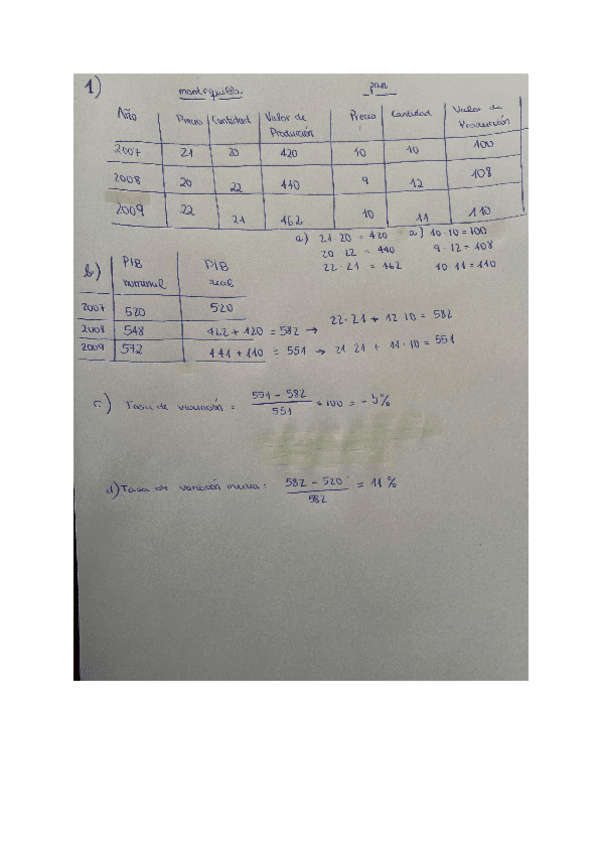 1)
mantequilla pan
Año Precio Cantidad Valor de Producción Precio Cantidad Valor de Producción
2007 21 20 420 10 10 100
2008 20 22 440 9 12 108
2009 22 21 462 10 11 110
a) 21·20 = 420 a) 10·10 = 100
20·22 = 440 9·12 = 108
22·21 = 462 10·11 = 110
b) PIB nominal PIB real
2007 520 520
2008 548 462 + 120 = 582 → 22·21 + 12·10 = 582
2009 572 441 + 110 = 551 → 21·21 + 11·10 = 551
c.) Tasa de variación = 551 - 582 / 551 × 100 = -5%
d) Tasa de variación media: 582 - 520 / 582 = 11%